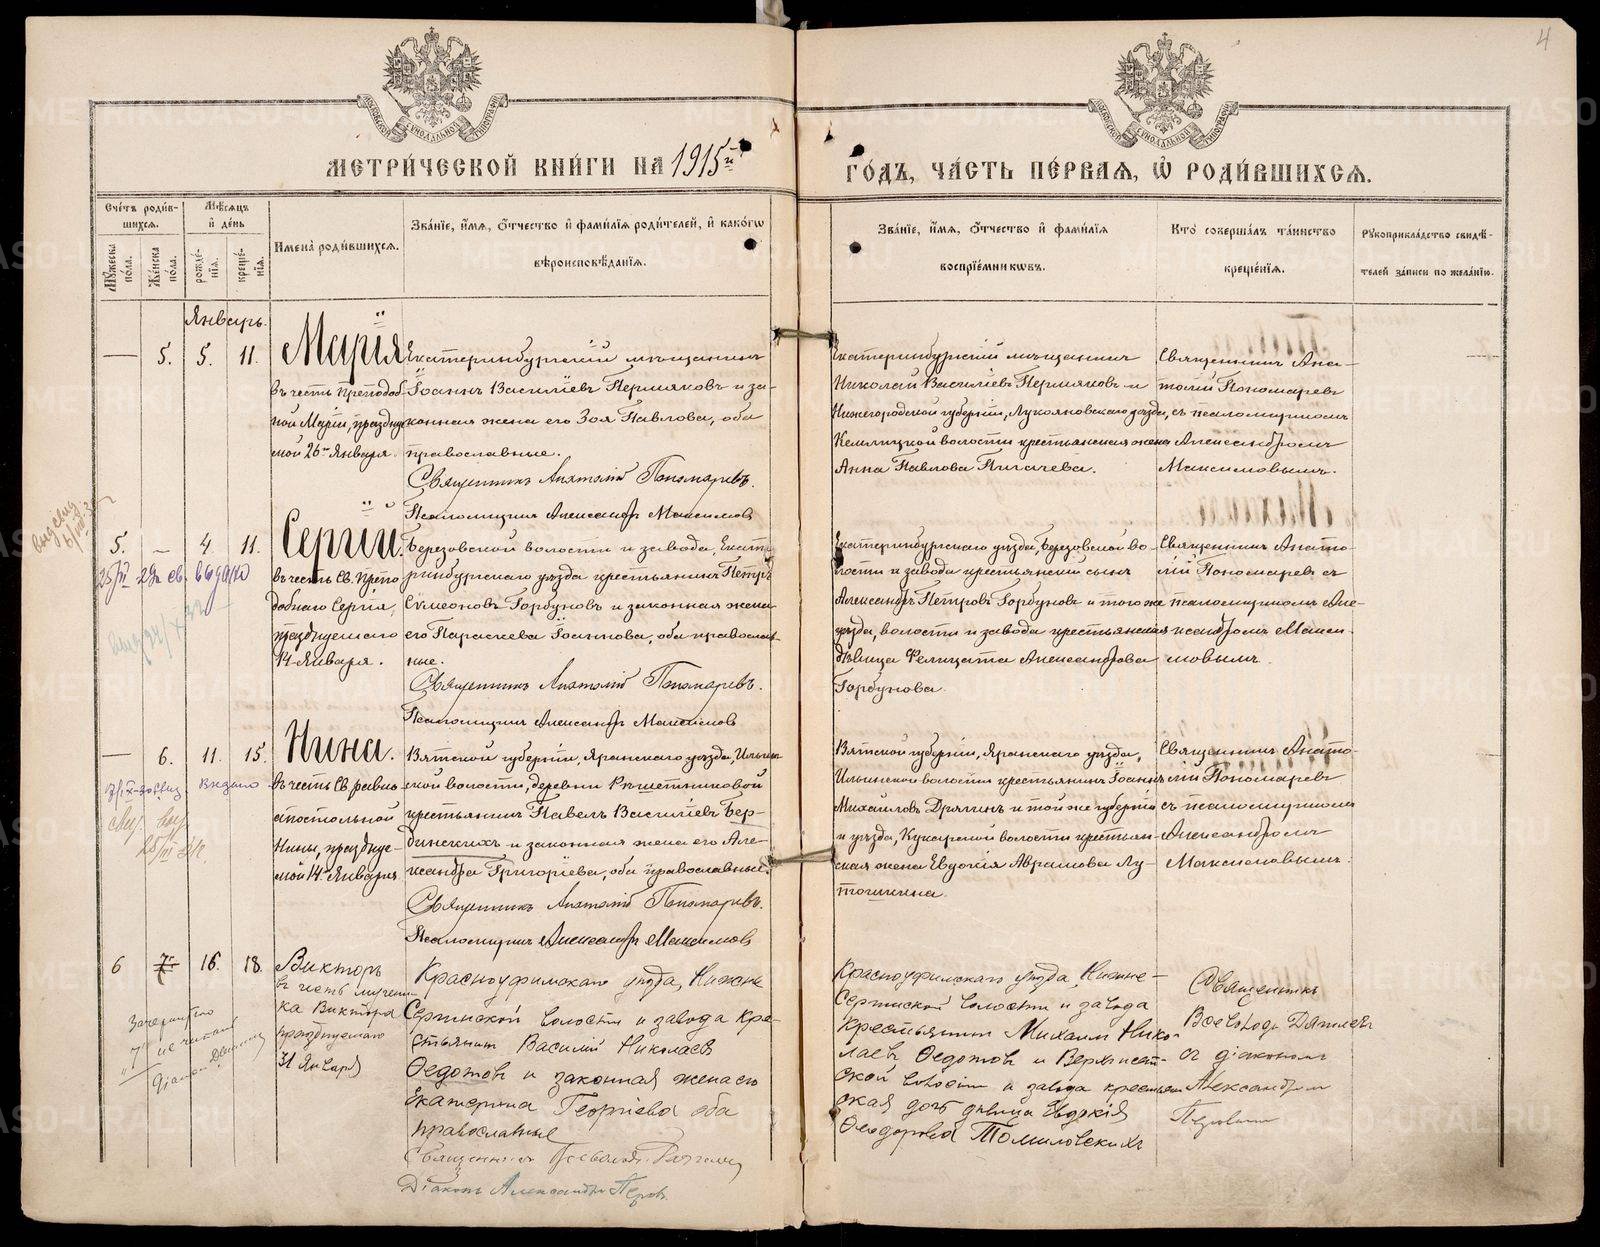 4
МЕТРИ́ЧЕСКОЙ КНИ́ГИ НА 1915й
ГО́ДЪ, ЧА́СТЬ ПЕ́РВАѦ, Ѡ҆ РОДИ́ВШИХСѦ.
Сче́тъ роди́в-
шихсѧ.
Мꙋ́жеска по́ла.
Же́нска по́ла.
Мѣ́сѧцъ
и҆ де́нь
рожде́-
нїѧ.
креще́-
нїѧ.
И҆мена̀ роди́вшихсѧ.
Зва́нїе, и҆́мѧ, ѻ҆́тчество и҆ фами́лїѧ роди́телей, и҆ како́гѡ
вѣроисповѣ́данїѧ.
Зва́нїе, и҆́мѧ, ѻ҆́тчество и҆ фами́лїѧ
воспрїе́мникѡвъ.
Кто̀ соверша́лъ та́инство
креще́нїѧ.
Рꙋкоприкла́дство свидѣ́-
телей за́писи по жела́нїю.
Январь.
— 5. 5. 11.
Марія
въ честь преподоб
ной Маріи, праздну
мой 26го Января.
Екатеринбургскій мѣщанинъ
Іоаннъ Василіевъ Пермяковъ и за-
конная жена его Зоя Павлова, оба
православные.
Священникъ Анатолій Пономаревъ.
Псаломщикъ Александръ Максимовъ
Екатеринбургскій мѣщанинъ
Николай Василіевъ Пермяковъ и
Нижегородской губерніи, Лукояновскаго уѣзда,
волости крестьянская жена
Анна Павлова Пигачева.
Священникъ Ана-
толій Пономаревъ
съ псаломщикомъ
Александромъ
Максимовымъ.
5. — 4 11.
Сергій.
въ честь Св. Препо
добнаго Сергія,
празднуемаго
14 Января.
Березовской волости и завода, Екате
ринбургскаго уѣзда крестьянинъ Петръ
Симеоновъ Горбуновъ и законная жена
его Параскева Іоаннова, оба православ-
ные.
Священникъ Анатолій Пономаревъ.
Псаломщикъ Александръ Максимовъ
Екатеринбургскаго уѣзда, Березовской во-
лости и завода крестьянскій сынъ
Александръ Петровъ Горбуновъ и того же
уѣзда, волости и завода крестьянская
дѣвица Фелицата Александрова
Горбунова.
Священникъ Анато-
лій Пономаревъ съ
псаломщикомъ Але-
ксандромъ Макси-
мовымъ.
— 6. 11. 15.
выдано
Нина.
въ честь Св. равно
апостольной
Нины, празднуе-
мой 14го Января
Вятской губерніи, Яранскаго уѣзда, Ильин
ской волости, деревни Рѣшетниковой
крестьянинъ Павелъ Василіевъ Бер-
динскихъ и законная жена его Але-
ксандра Григоріева, оба православные.
Священникъ Анатолій Пономаревъ.
Псаломщикъ Александръ Максимовъ
Вятской губерніи, Яранскаго уѣзда,
Ильинской волости крестьянинъ Іоаннъ
Михаиловъ Дрягинъ и той же губерніи
и уѣзда, Кукарской волости крестьян-
ская жена Евдокія Аврамова Лу-
тошкина.
Священникъ Анато-
лій Пономаревъ
съ псаломщикомъ
Александромъ
Максимовымъ.
6 7 16. 18.
Зачеркнуто
"7" не читать
Викторъ
въ честь мучени-
ка Виктора
празднуемаго
31 Января
Красноуфимскаго уѣзда, Нижне
Сергинской волости и завода кре-
стьянинъ Василій Николаевъ
Ѳедотовъ и законная жена его
Екатерина Георгіева оба
православные
Священникъ Всеволодъ
Діаконъ Александръ Перовъ.
Красноуфимскаго уѣзда, Нижне-
Сергинской волости и завода
Крестьянинъ Михаилъ Нико-
лаевъ Ѳедотовъ и Верхисет-
ской волости и завода крестьян
ская дочь дѣвица Евдокія
Ѳеодорова Томиловскихъ
Священникъ
Всеволодъ
съ діакономъ
Александромъ
Перовымъ